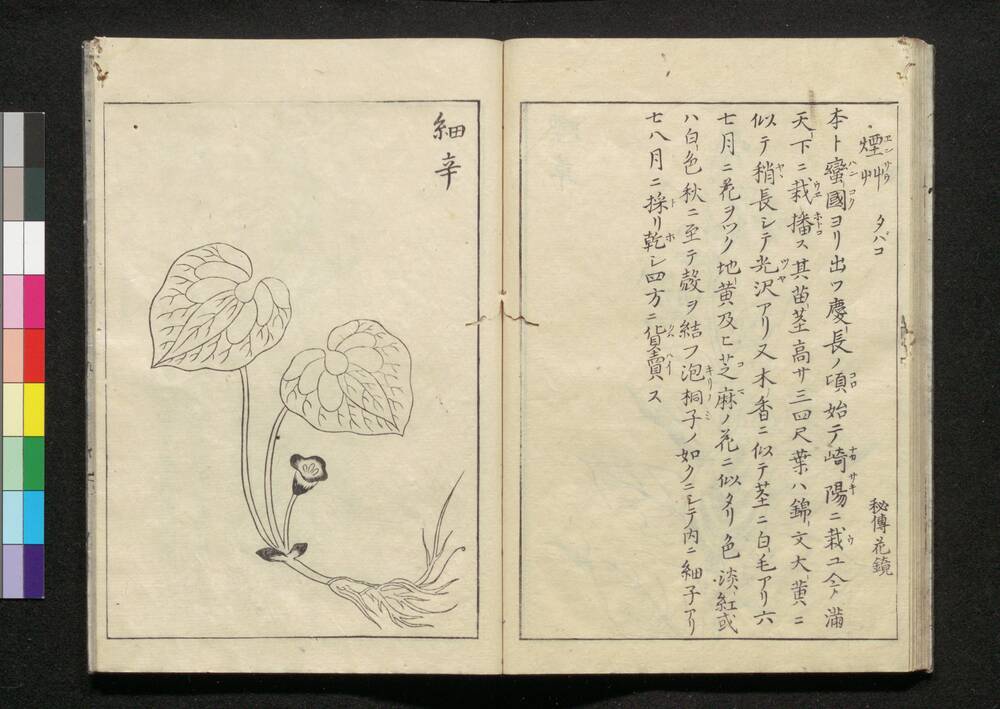 煙艸 タバコ 秘傳花鏡
本ト蠻國ヨリ出ツ慶長ノ頃始テ崎陽ニ栽ユ今滿
天下ニ栽播ス其苗茎高サ三四尺葉ハ錦文大黄ニ
似テ稍長シテ光沢アリ又木香ニ似テ茎ニ白毛アリ六
七月ニ花ヲツク地黄及ヒ芝麻ノ花ニ似タリ色淡紅或
ハ白色秋ニ至テ殻ヲ結フ泡桐子ノ如クニシテ内ニ細子アリ
七八月ニ採リ乾シ四方ニ貨賣ス
細辛